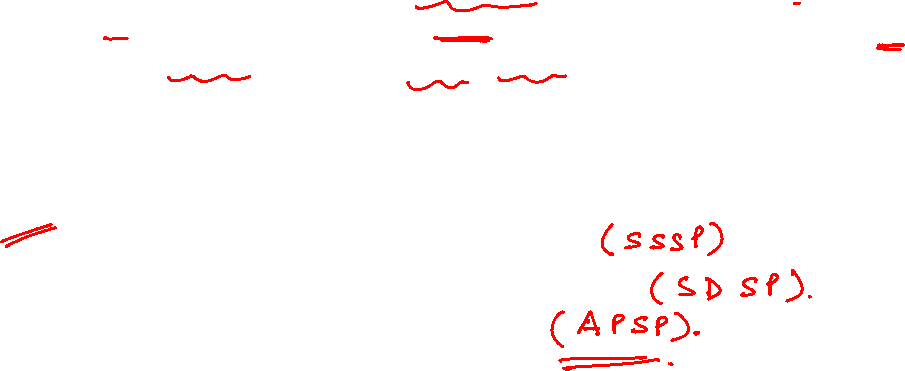 (SSSP)
(SDSP).
(APSP).